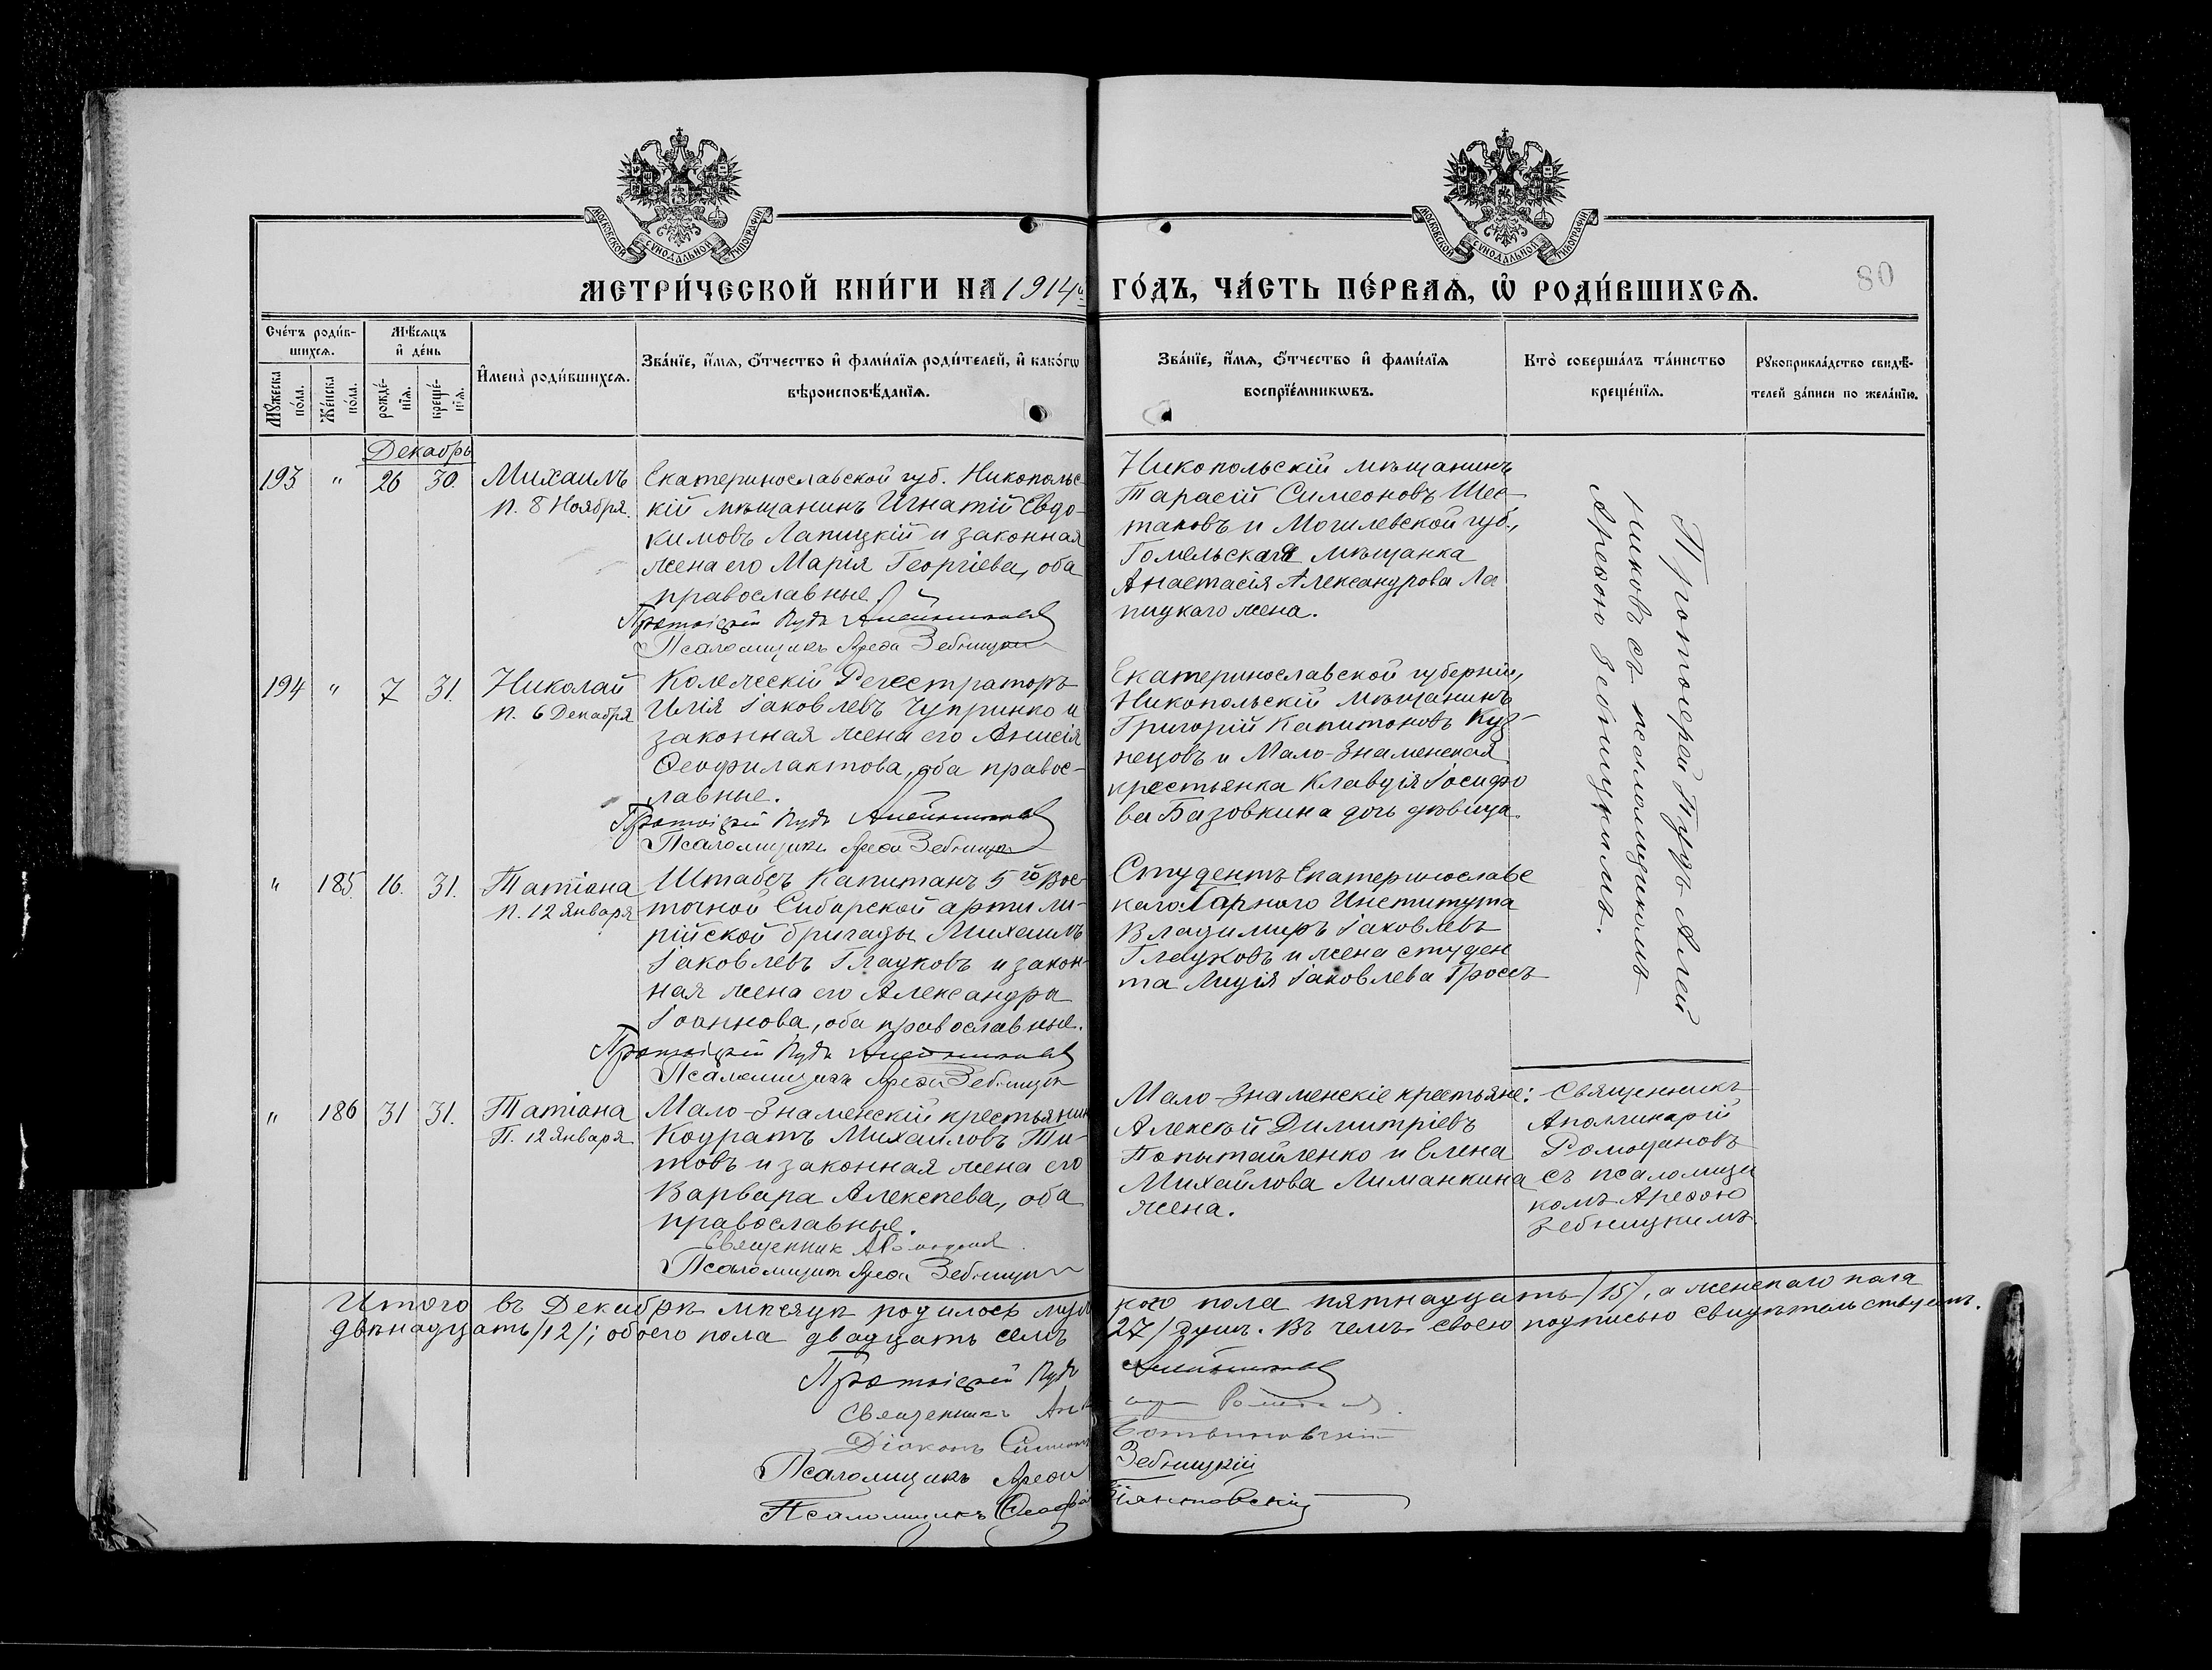 МОСКОВСКОЙ СѴНОДАЛЬНОЙ ТИПОГРАФІИ
МОСКОВСКОЙ СѴНОДАЛЬНОЙ ТИПОГРАФІИ
МЕТРИ́ЧЕСКОЙ КНИ́ГИ НА 1914й ГО́ДЪ, ЧА́СТЬ ПЕ́РВАѦ, Ѡ҆ РОДИ́ВШИХСѦ.
80
Сче́тъ роди́в-
шихсѧ.
Мѣ́сѧцъ
и҆ де́нь
Му́жеска
по́ла.
Же́нска
по́ла.
рожде́-
нїѧ.
креще́-
нїѧ.
И҆мена̀ роди́вшихсѧ.
Зва́нїе, и҆́мѧ, ѻ҆́тчество и҆ фами́лїѧ роди́телей, и҆ како́гѡ
вѣроисповѣ́данїѧ.
Зва́нїе, и҆́мѧ, ѻ҆́тчество и҆ фами́лїѧ
воспрїе́мникѡвъ.
Кто̀ соверша́лъ та́инство
креще́нїѧ.
Рукоприкла́дство свидѣ́-
телей за́писи по жела́нїю.
Декабрь
193 " 26 30. Михаилъ
п. 8 Ноября.
Екатеринославской губ. Никопольс-
кій мѣщанинъ Игнатій Евдо-
кимовъ Лапицкій и законная
жена его Марія Георгіева, оба
православные.
Протоіерей Пудъ Алейников
Псаломщикъ Арефа Зебницкій
Никопольскій мѣщанинъ
Тарасій Симеоновъ Шес-
таковъ и Могилевской губ.,
Гомельская мѣщанка
Анастасія Александрова Ла
пицкаго жена.
Протоіерей Пудъ Алей
никовъ съ псаломщикомъ
Арефою Зебницкимъ.
194 " 7 31. Николай
п. 6 Декабря
Колежскій Регистраторъ
Илія Іаковлевъ Чупринко и
законная жена его Анисія
Ѳеофилактова, оба правос-
лавные.
Протоіерей Пудъ Алейников
Псаломщикъ Арефа Зебницкій
Екатеринославской губерніи,
Никопольскій мѣщанинъ
Григорій Капитоновъ Куз-
нецовъ и Мало-Знаменская
крестьянка Клавдія Іосифо
ва Базовкина дочь дѣвица.
" 185. 16. 31. Татіана
п. 12 Января
Штабсъ Капитанъ 5го Вос-
точной Сибирской артили-
рійской бригады Михаилъ
Іаковлевъ Гладковъ и закон-
ная жена его Александра
Іоаннова, оба православные.
Протоіерей Пудъ Алейников
Псаломщикъ Арефа Зебницкій
Студентъ Екатеринославс
каго Горнаго Института
Владимиръ Іаковлевъ
Гладковъ и жена студен
та Лидія Іаковлева Гроссъ
" 186 31 31. Татіана
П. 12 Января
Мало-Знаменскій крестьянин
Кодратъ Михайловъ Ти-
товъ и законная жена его
Варвара Алексѣева, оба
православные.
Священник А Ромоданов
Псаломщикъ Арефа Зебницкій
Мало-Знаменскіе крестьяне:
Алексѣй Димитріевъ
Попытайленко и Елена
Михайлова Лиманкина
жена.
Священникъ
Аполлинарій
Ромодановъ
съ псаломщи
комъ Арефою
Зебницкимъ.
Итого въ Декабрѣ мѣсяцѣ родилось муж кого пола пятнадцать /15/, а женскаго пола
двѣнадцать /12/; обоего пола двадцать семь 27/ душъ. Въ чемъ своею подписью свидѣтельствуемъ.
Протоіерей Пудъ Алейников
Священникъ Ромоданов.
Діаконъ Симеон
Псаломщикъ Арефа Зебницкій
Псаломщикъ Ѳеофа